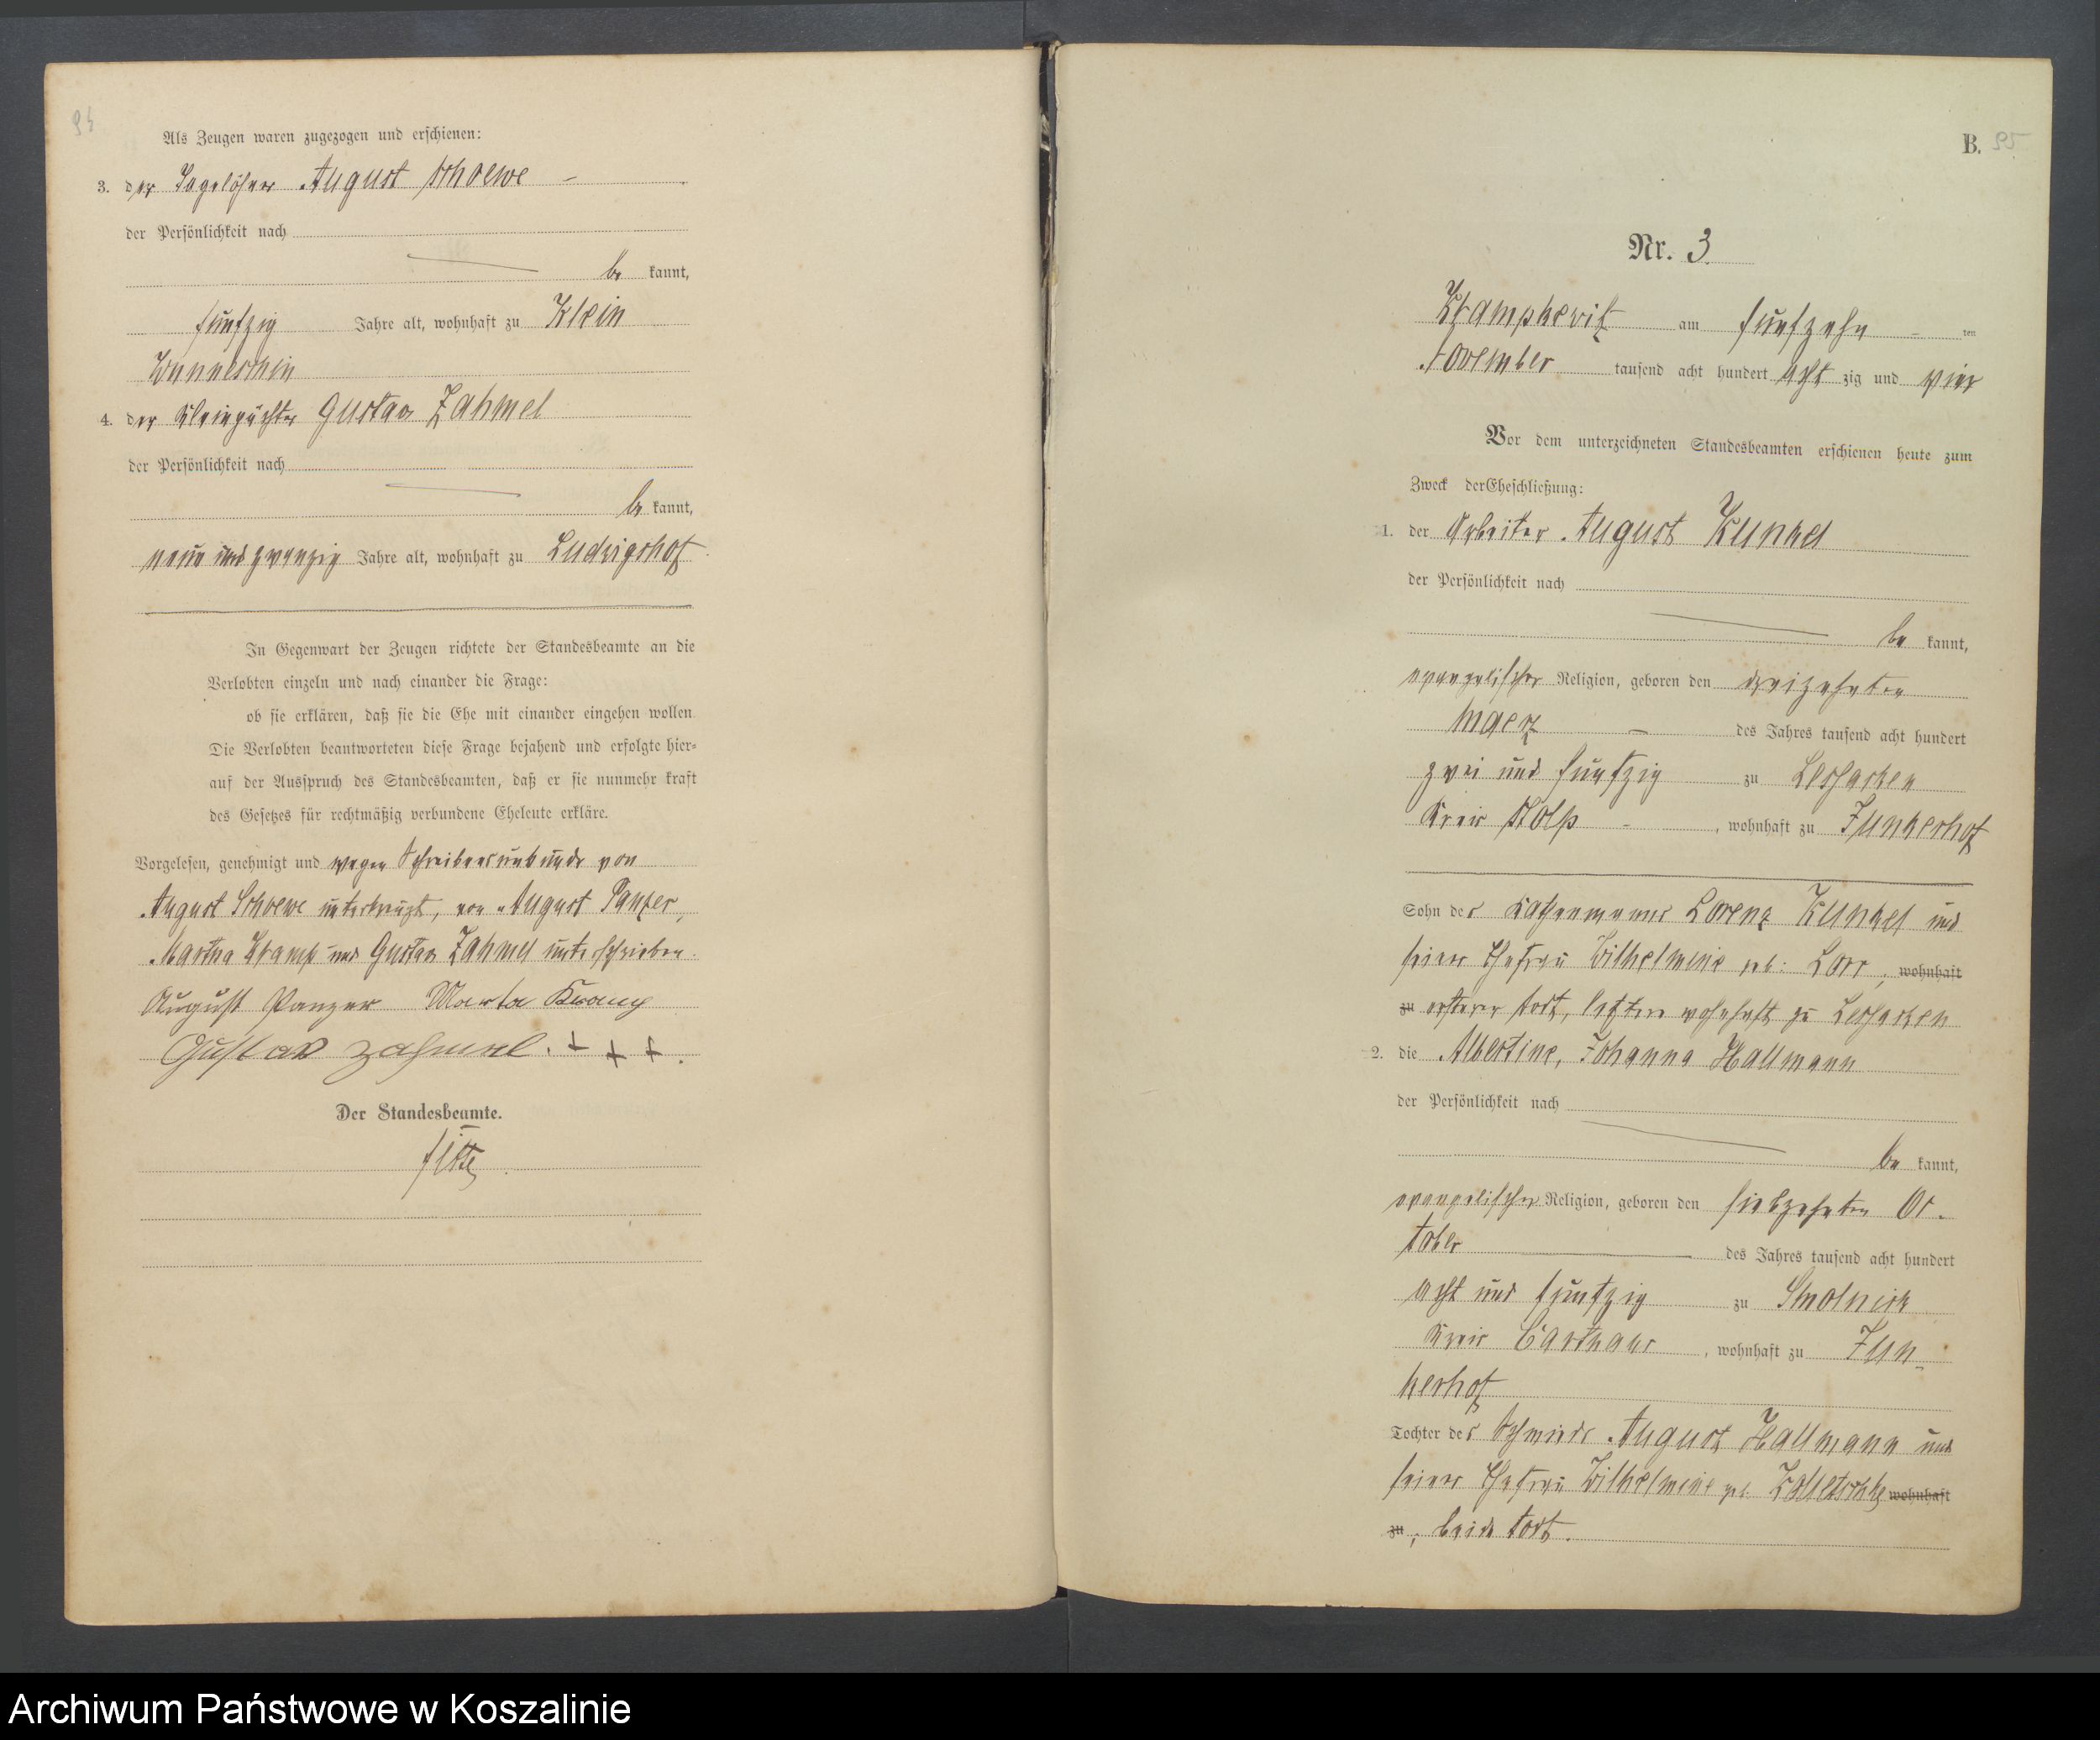 94
Als Zeugen waren zugezogen und erschienen:
3. der Tagelöhner August Schoewe –
der Persönlichkeit nach
be kannt,
funfzig Jahre alt, wohnhaft zu Klein
Wunneschin
4. der Kleinpächter Gustav Zahmel
der Persönlichkeit nach
be kannt,
neun und zwanzig Jahre alt, wohnhaft zu Ludwigshof
In Gegenwart der Zeugen richtete der Standesbeamte an die
Verlobten einzeln und nach einander die Frage:
ob sie erklären, daß sie die Ehe mit einander eingehen wollen
Die Verlobten beantworteten diese Frage bejahend und erfolgte hier-
auf der Ausspruch des Standesbeamten, daß er sie nunmehr kraft
des Gesetzes für rechtmäßig verbundene Eheleute erkläre.
Vorgelesen, genehmigt und wegen Schreibensunkunde von
August Schoewe unterkreuzt, von August Panzer,
Martha Kramp und Gustav Zahmel unterschrieben.
August Panzer Marta Kramp
Gustav Zahmel. + + +.
Der Standesbeamte.
B. 95
Nr. 3
Krampkewitz am funfzehn – ten
November tausend acht hundert acht zig und vier
Vor dem unterzeichneten Standesbeamten erschienen heute zum
Zweck der Eheschließung:
1. der Arbeiter August Kunkel
der Persönlichkeit nach
be kannt,
evangelischer Religion, geboren den dreizehnten
Maerz – des Jahres tausend acht hundert
zwei und funfzig zu Lessaken
Kreis Stolp – , wohnhaft zu Junkerhof
Sohn des Kathenmanns Lorenz Kunkel und
seiner Ehefrau Wilhelmine geb: Lorr, wohnhaft
zu ersterer todt, letztere wohnhaft zu Lessaken
2. die Albertine, Johanna Hallmann
der Persönlichkeit nach
be kannt,
evangelischer Religion, geboren den siebzehnten Oc-
tober des Jahres tausend acht hundert
acht und funfzig zu Smolnick
Kreis Carthaus , wohnhaft zu Jun-
kerhof
Tochter des Schmieds August Hallmann und
seiner Ehefrau Wilhelmine geb. wohnhaft
zu ; beide todt.
Archiwum Państwowe w Koszalinie